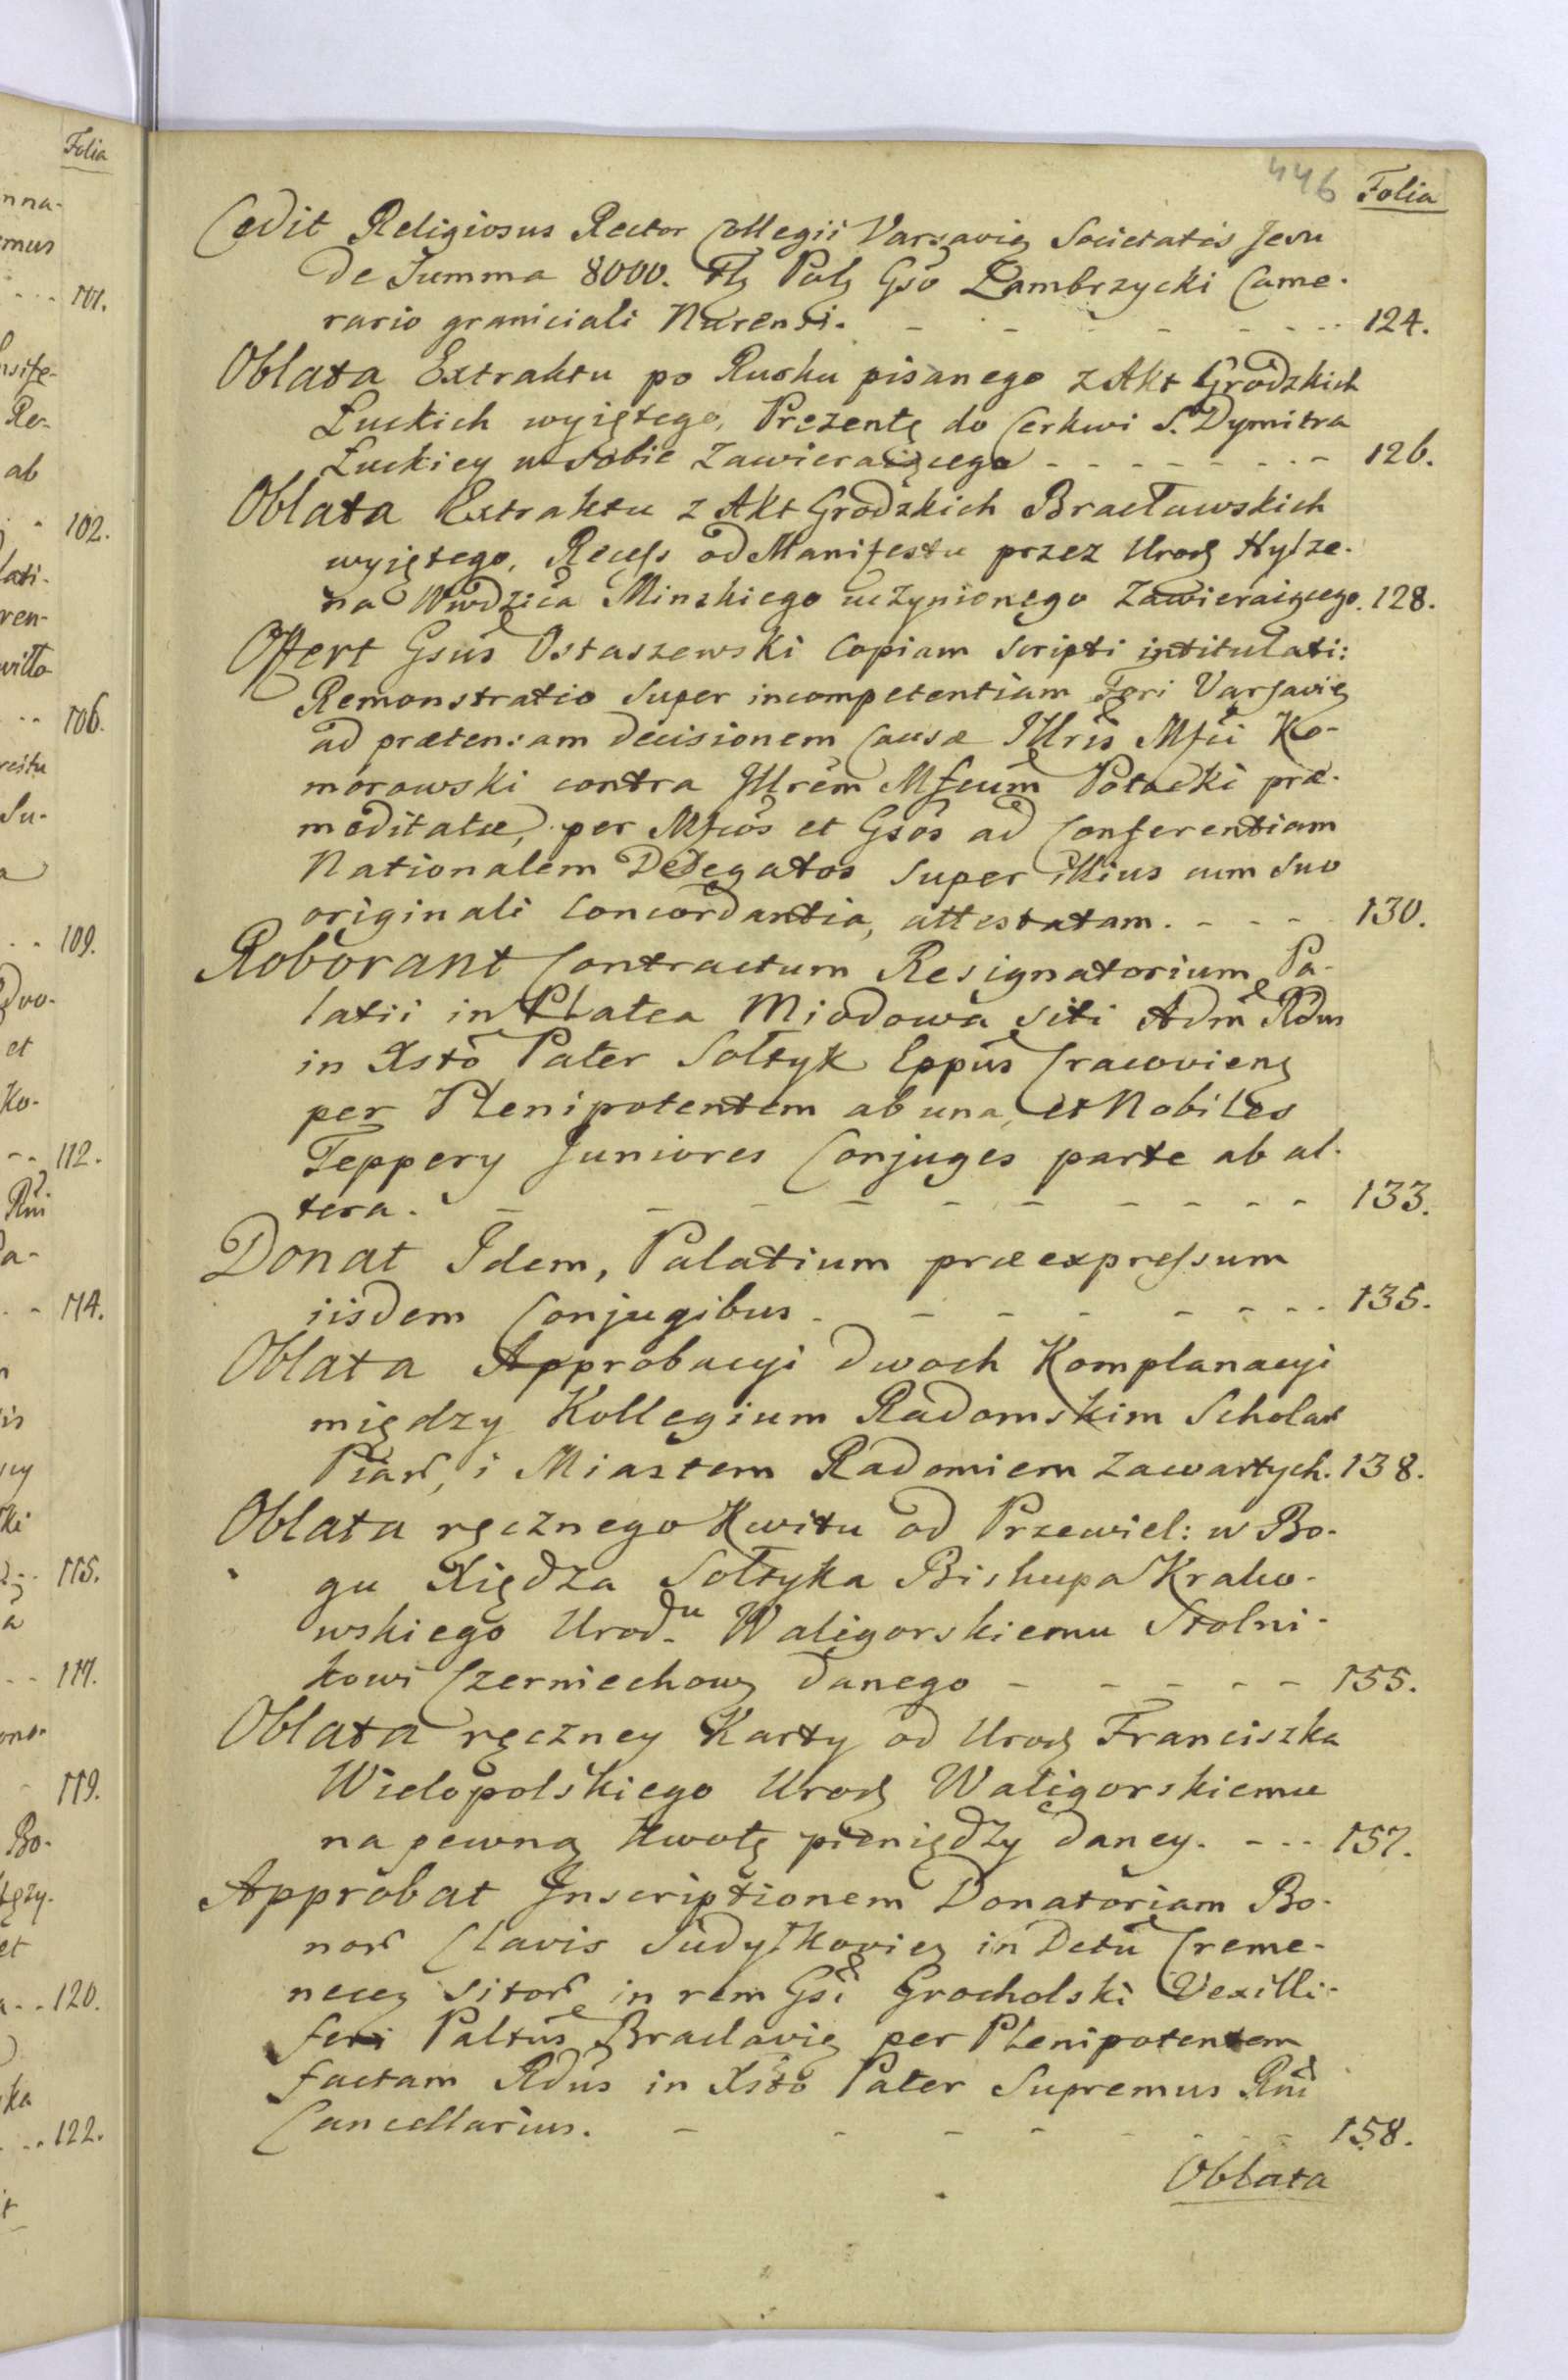 446 Folia
Cedit Religiosus Rector Collegii Varsavię Societatis Jesu
de Summa 8000. Flę Polę Gso Zambrzycki Came-
rario graniciali Nurensi. - - - - - - - 124.
Oblata Extraktu po Rusku pisanego z Akt Grodzkich
Łuckich wyiętego, Prezentę do Cerkwi S. Dymitra
Łuckiey w sobie zawieraiącego - - - - - - - 126.
Oblata Extraktu z Akt Grodzkich Bracławskich
wyiętego, Recess od Manifestu przez Urodz Hylze-
na Wwdzica Minskiego uczynionego zawieraiącego. 128.
Offert Gsus Ostaszewski Copiam scripti intitulati:
Remonstratio super incompetentiam Fori Varsavię
ad præten:am decisionem Causæ Illris Mfci Ko-
morowski contra Illrem Mfcum Potocki præ-
meditatæ, per Mfcos et Gsos ad Conferentiam
Nationalem Delegatos super illius cum suo
originali concordantia, attestatam. - - - - 130.
Roborant Contractum Resignatorium Pa-
latii in Platea Miodowa siti Adm Rdus
in Xsto Pater Sołtyk Eppus Cracovienę
per Plenipotentem ab una, et Nobiles
Teppery Juniores Conjuges parte ab al-
tera. - - - - - - - - - - 133.
Donat Idem, Palatium præexpressum
iisdem Conjugibus. - - - - - - - 135.
Oblata Approbacyi dwoch Komplanacyi
między Kollegium Radomskim Scholar
Piar, i Miastem Radomiem zawartych. 138.
Oblata ręcznego Kwitu od Przewiel: w Bo-
gu Xiędza Sołtyka Biskupa Krako-
wskiego Urod.u Waligorskiemu Stolni-
kowi Czerniechowę danego - - - - - 155.
Oblata ręczney Karty od Urodz Franciszka
Wielopolskiego Urodz Waligorskiemu
na pewną kwotę pieniędzy daney. - - - 157.
Approbat Inscriptionem Donatoriam Bo-
nor Clavis Sudyłkovię in Dctu Creme-
necę sitor in rem Gsi Grocholski Vexilli-
feri Paltus Braclavię per Plenipotentem
factam Rdus in Xsto Pater Supremus Rni
Cancellarius. - - - - - - - 158.
Oblata